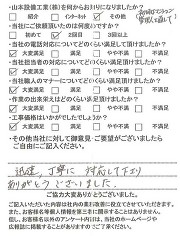 ・山本設備工業(株)を何からお知りになりましたか?
□ 紹介 □ インターネット ☑ その他
・当社にご依頼頂いたのは何度目ですか?
□ 初めて ☑ 2回目 □ 3回目以上
・当社の電話対応についてどのくらい満足して頂けましたか?
☑ 大変満足 □ 満足 □ やや不満 □ 不満足
・当社担当者の対応についてどのくらい満足して頂けましたか?
☑ 大変満足 □ 満足 □ やや不満 □ 不満足
・当社職人のマナーについてどのくらい満足して頂けましたか?
☑ 大変満足 □ 満足 □ やや不満 □ 不満足
・作業の出来栄えはどのくらい満足して頂けましたか?
☑ 大変満足 □ 満足 □ やや不満 □ 不満足
・工事価格はいかがでしたでしょうか?
☑ 大変満足 □ 満足 □ やや不満 □ 不満足
・その他当社に対っての御意見・ご要望がございましたら
ご自由にご記入ください。
迅速、丁寧に対応して下さり
ありがとうございました。
ご協力大変ありがとうございました。
ご記入いただいた内容は社内の業務改善に役立てさせていただきます。
また、お客様名等個人情報を第三者に開示することはありません。
但し、お客様名以外のアンケート内容は、当社のホームページや
広報誌に掲載することがありますのでご了承ください。